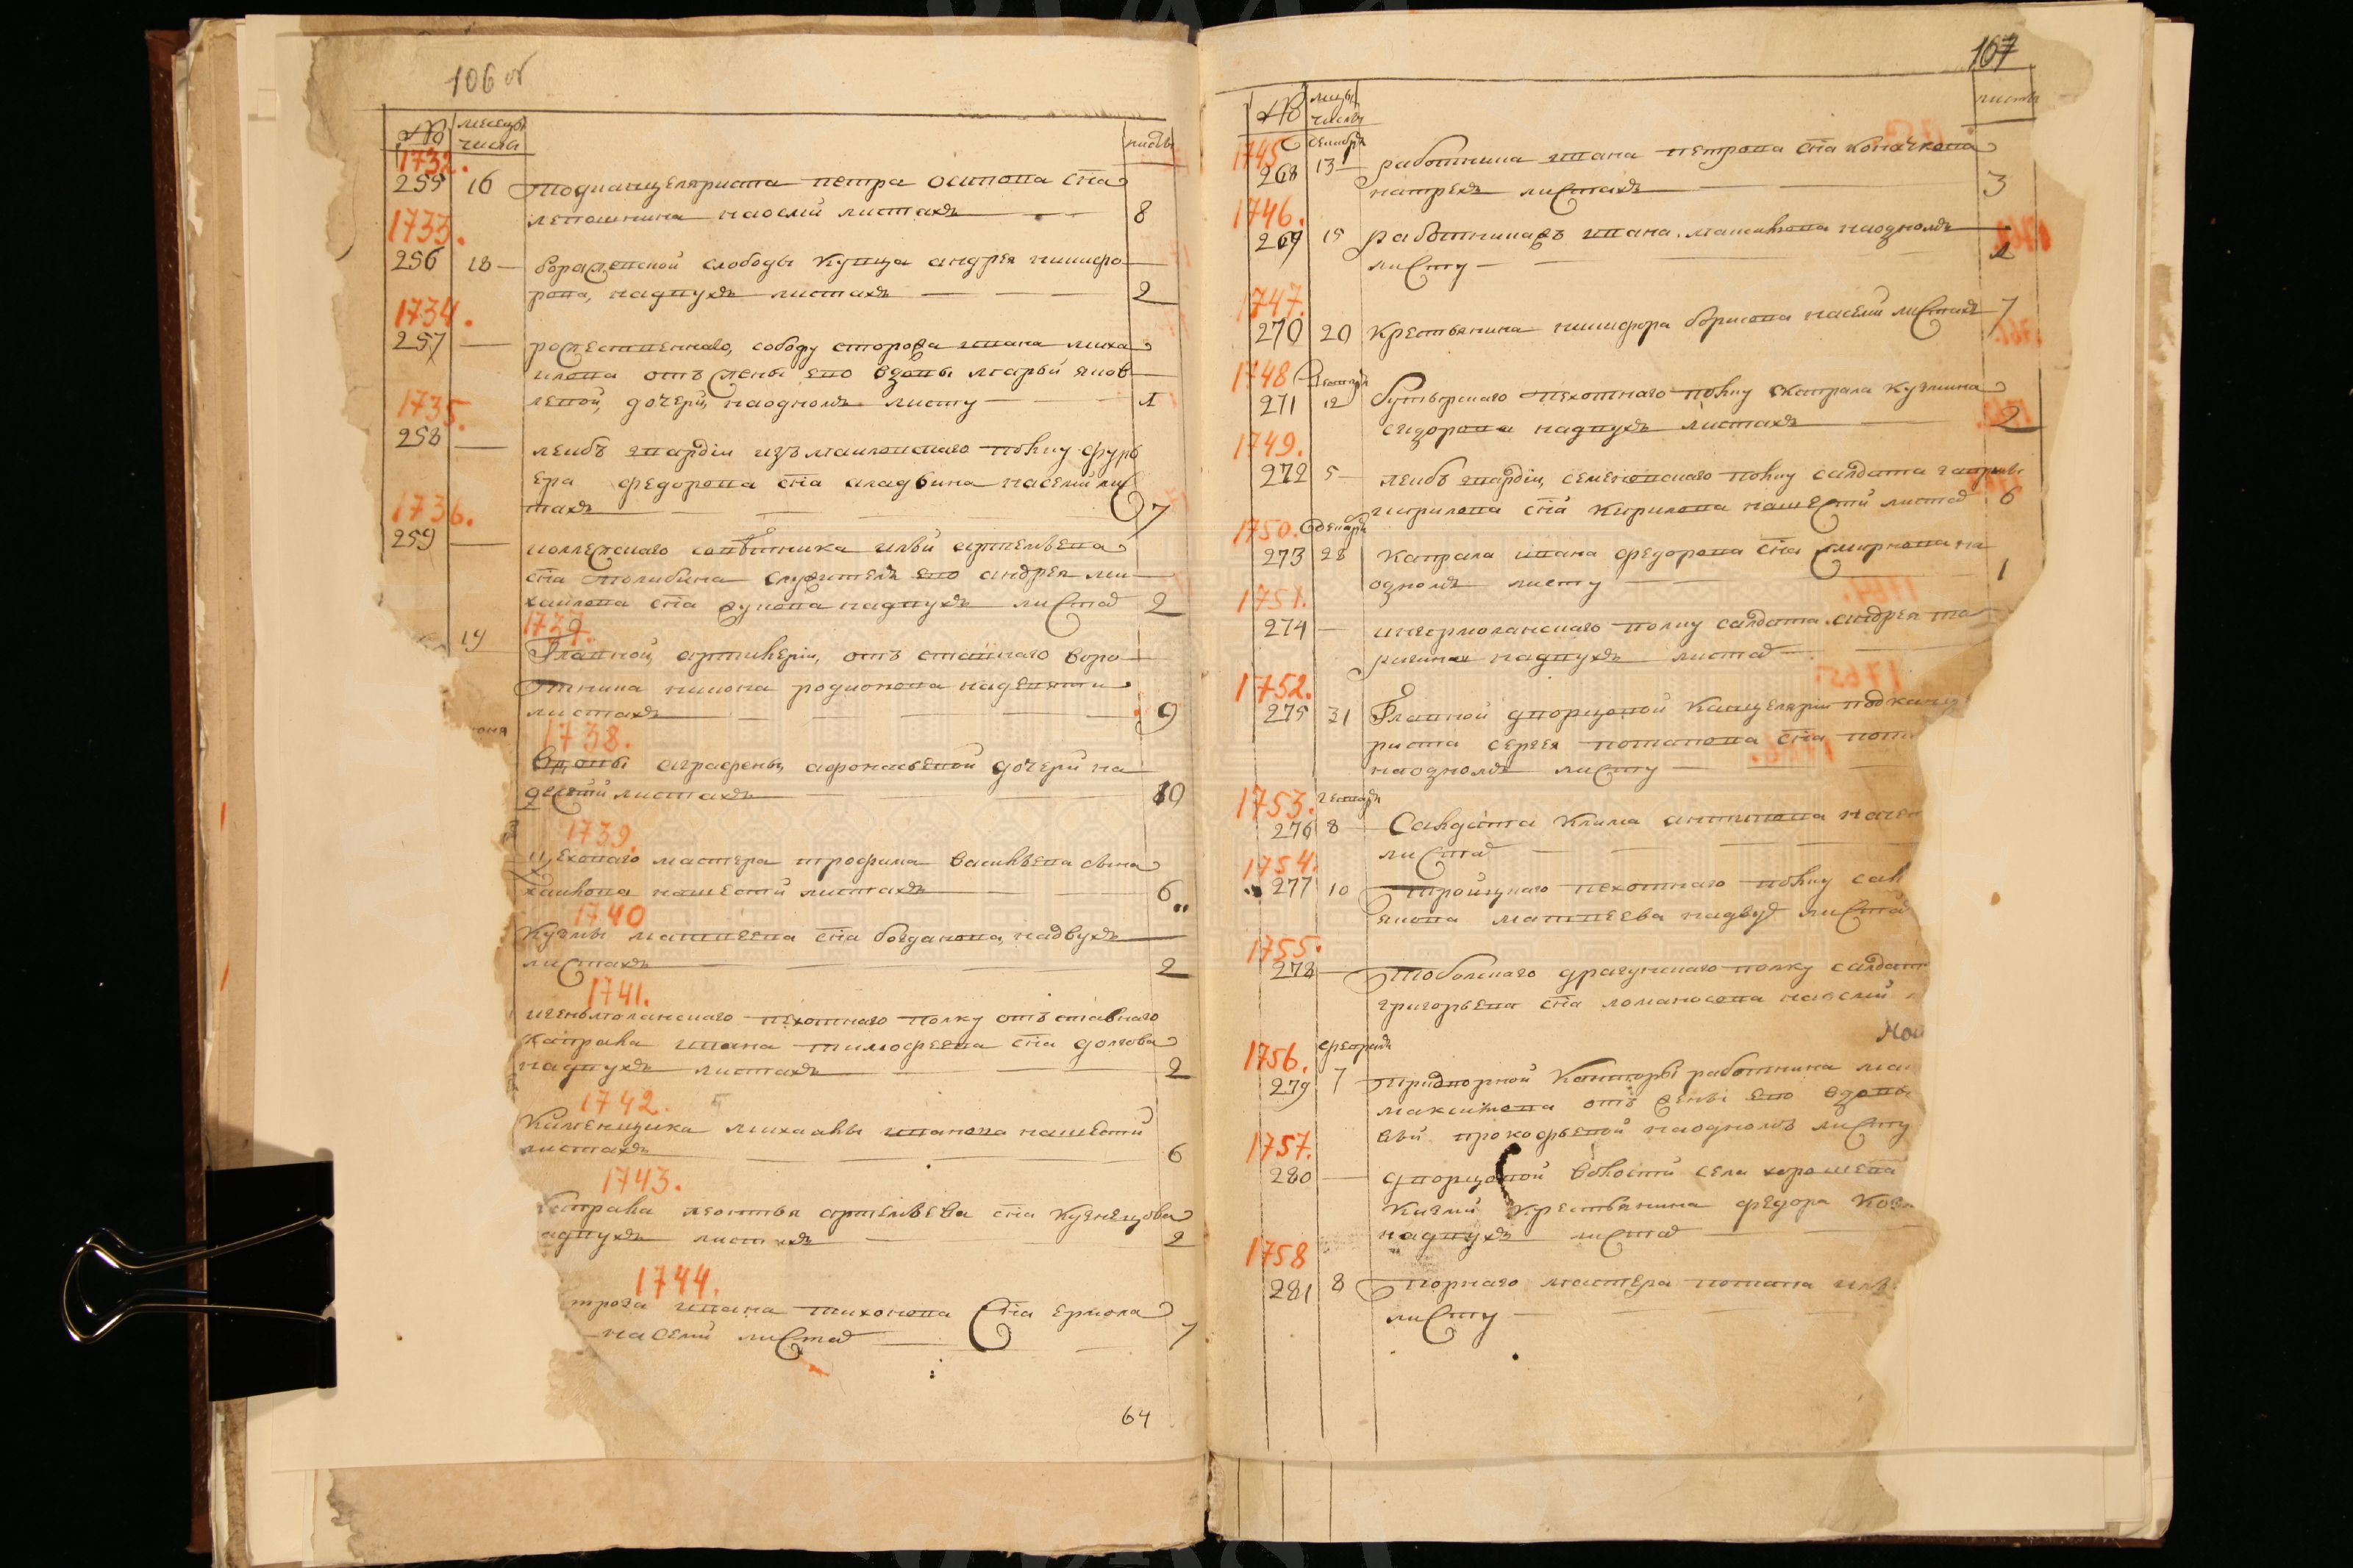 106 об
№ месецы числа листы
1732.
255 16 подканцеляриста петра осипова сна
лепешкина наосми листахъ 8
1733.
256 18 борашевской слободы купца андрея никифо
рова, надвухъ листахъ 2
1734.
257 рожественнаго, собору сторожа ивана миха
илова отъ жены ево вдовы марьи яков
левой, дочери, наодномъ листу 1
1735.
258 леибъ гвардiи измаиловскаго полку фурь
ера федорова сна аладьина насеми лис
тахъ 7
1736.
259 коллежскаго советника ильи артемьева
сна толибина служителя ево андрея ми
хаилова сна зукова надвухъ листах 2
19 1737.
Главной, артилерiи, отъ ставнаго воро
тника никона родионова надевяти
листахъ 9
1738.
Вдовы аграфены, афонасьевой дочери на
десети листахъ 10
1739.
цеховаго мастера трофима васильева сына
хаикова нашести листахъ 6
1740
Кузмы матвеева сна богданова, надвухъ
листахъ 2
1741.
ингеньмоланскаго пехотнаго полку отъставнаго
капрала ивана тимофеева сна долгова
надвухъ листахъ 2
1742.
Каменщика михаилы иванова нашести
листахъ 6
1743.
капрала леонтья артемьева сна кузнецова
адвухъ листахъ 2
1744.
трожа ивана тихонова сна ермола
насеми листах 7
64
107
№ мцы числы листы
1745 сентября
268 13 работника ивана петрова сна
натрехъ листахъ 3
1746.
269 15 работникажъ ивана. максимова наодномъ
листу 1
1747.
270 20 крестьянина никифора борисова насеми листах 7
1748
271 12 бутырскаго пехотнаго полку капрала кузмина
сидорова надвухъ листахъ 2
1749.
272 5 леибъ гвардiи, семеновскаго полку салдата гаврилы
гаврилова сна кирилова нашести листах 6
1750. декабря
273 28 капрала ивана федорова сна смирнова на
одномъ листу 1
1751.
274 ингермоланскаго полку салдата андрея та
рыгина надвухъ листах
1752.
275 31 Главной дворцовой канцелярiи подканц
риста сергея потапова сна пота
наодномъ листу
1753. генваря
276 8 Салдата клима антипова насем
листах
1754.
277 10 троицкаго пехотнаго полку сал
якова матвеева надвух листах
1755.
278 тобольскаго драгунскаго полку салдат
григорьева сна ломаносова наосми
1756. февраля
279 7 придворной канторы работника
максимова отъ жены ево вдовы
прокофьевой наодномъ листу
1757.
280 дворцовой волости села хорошева
крестьянина федора
надвухъ листах
1758
281 8 порнаго мастера потапа
листу